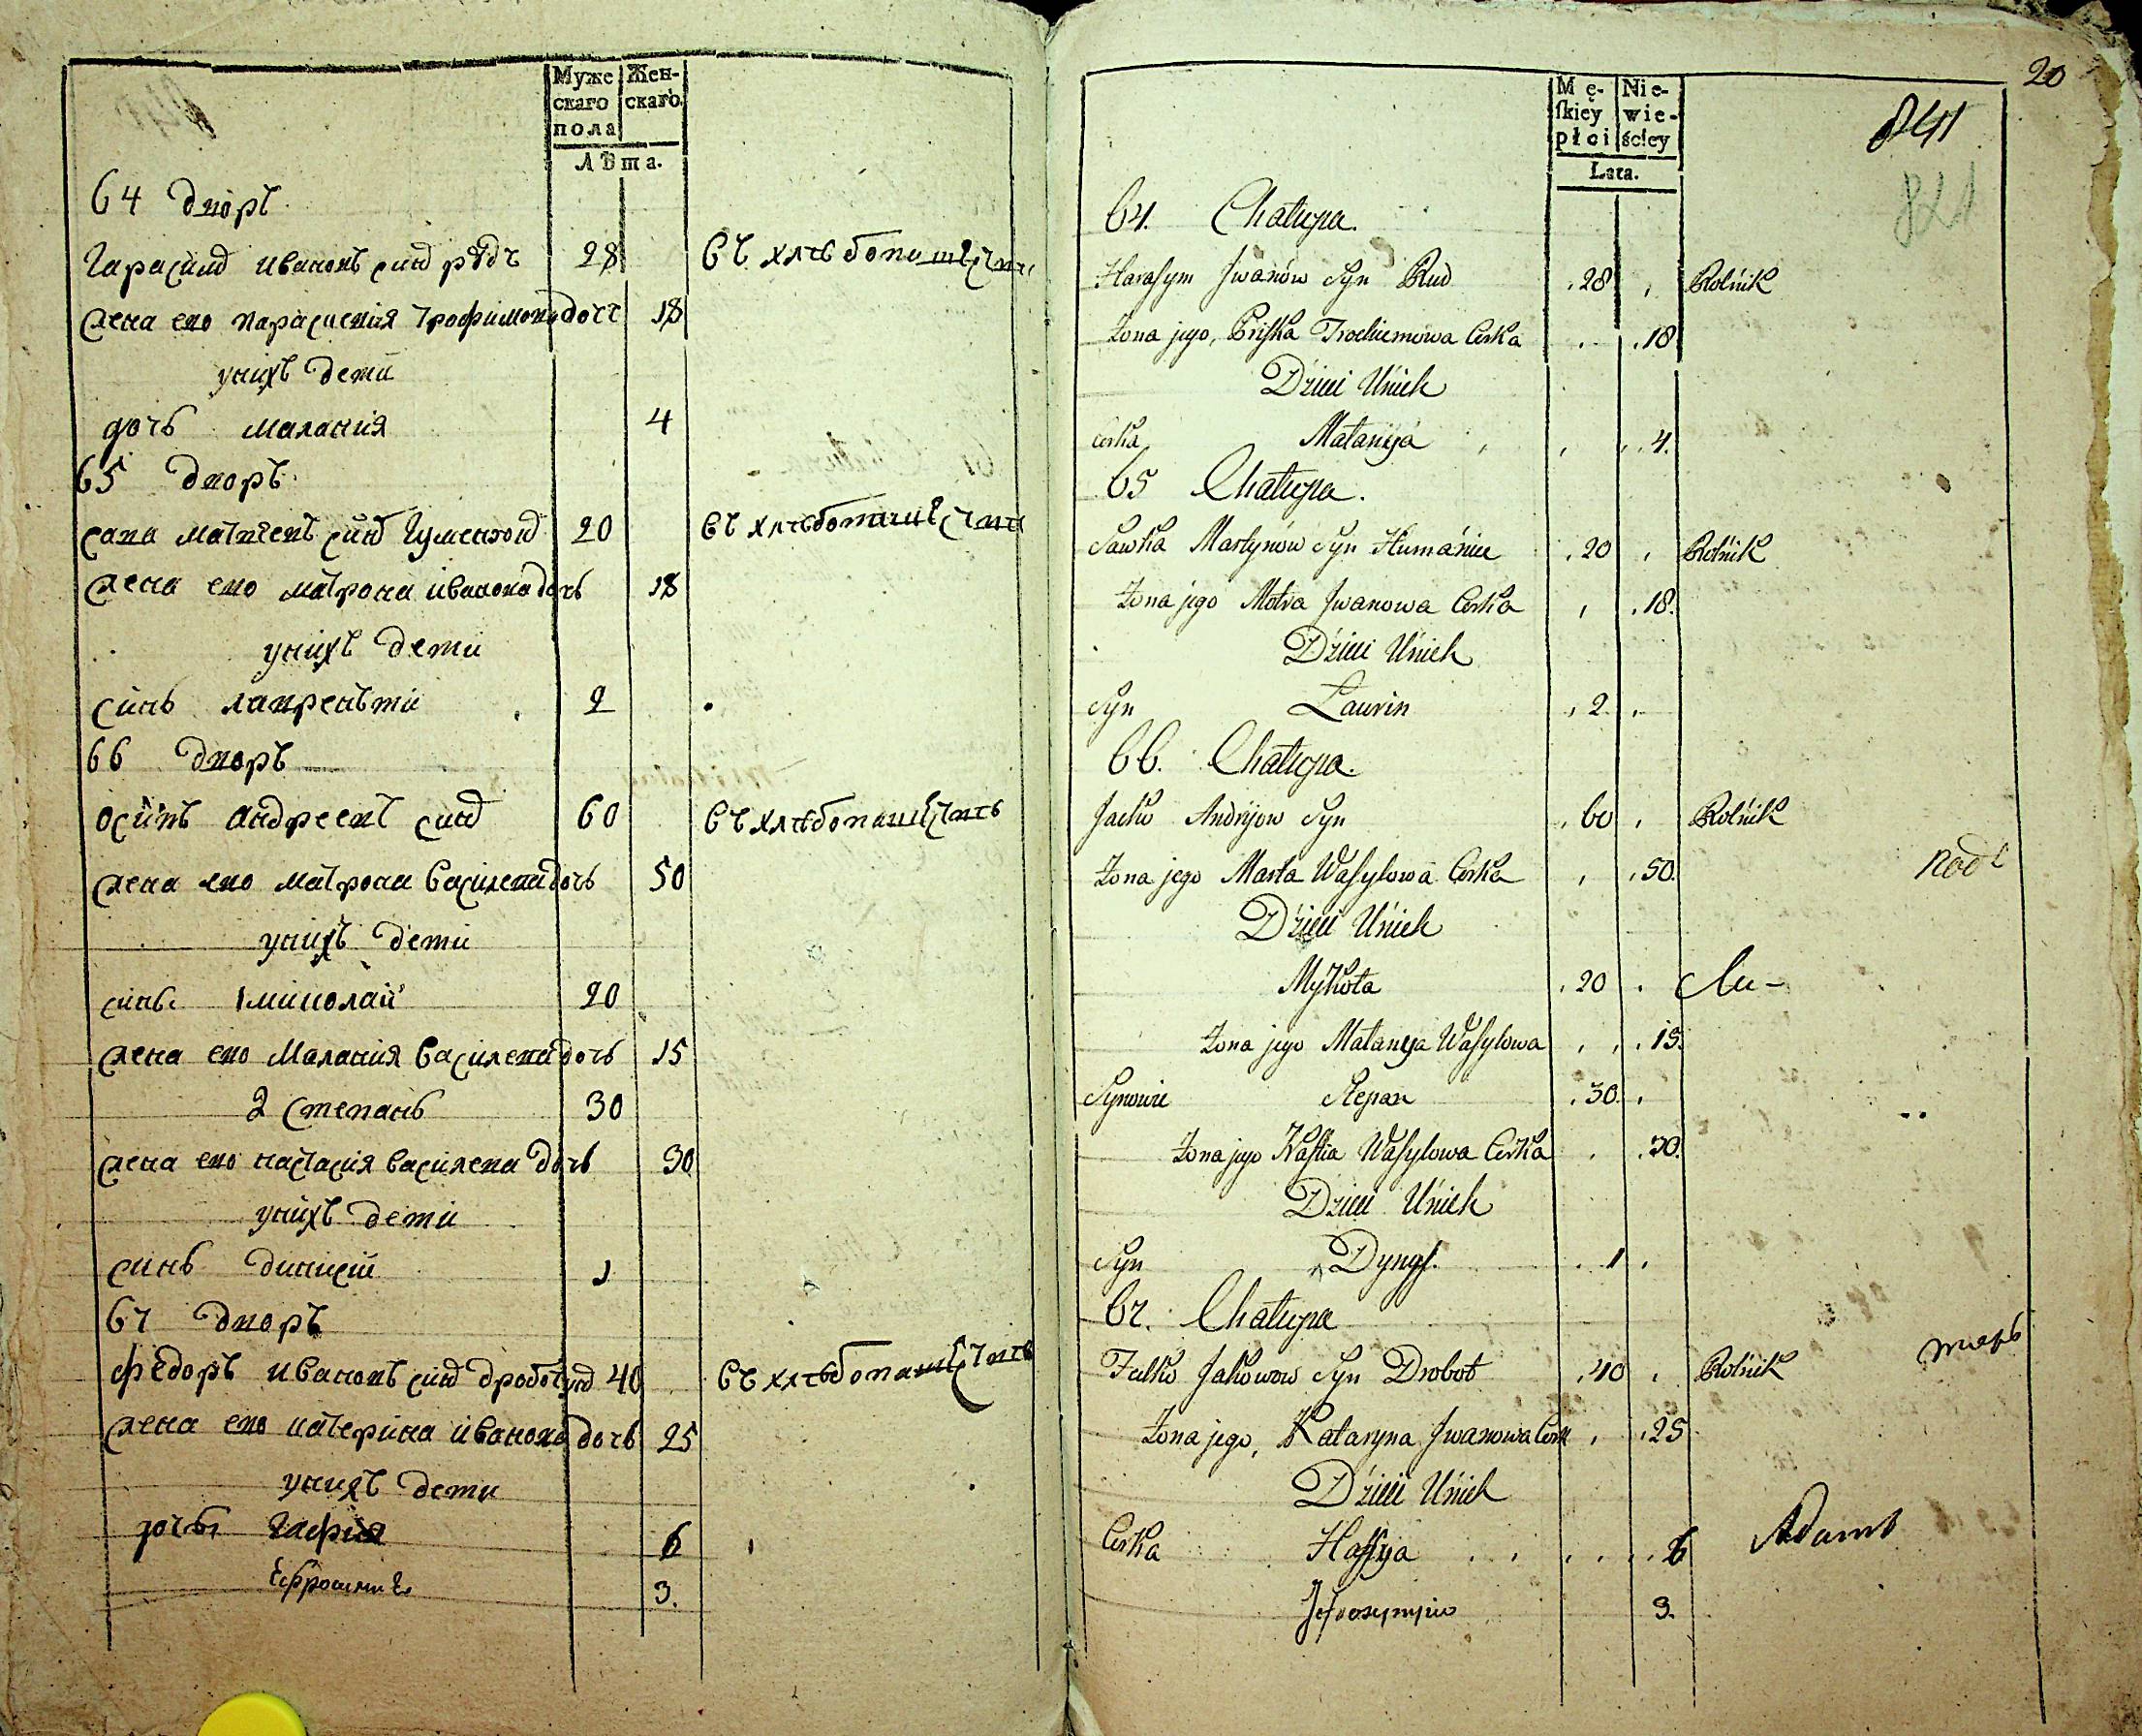 Муже
скаго
пола
Жен-
скаго.
Лѣта.
64 дворъ
Гарасимъ ивановъ синъ рудъ 28
жена его парасиевия трофимова дочь 18
унихъ дети
дочь малания 4
65 дворъ
сава синъ 20
жена его матрона иванова дочь 18
унихъ дети
синъ лаврентий 2
66 дворъ
осипъ андреевъ синъ 60
жена его матрона василева дочь 50
унихъ дети
синъ 1 николай 20
жена его малания василева дочь 15
2 степанъ 30
жена его настасия василева дочь 30
унихъ дети
синъ динисий 1
67 дворъ
федоръ ивановъ синъ 40
жена его катерина иванова дочь 25
унихъ дети
дочь гафия 6
3.
20
841
821
Mę-
ſkiey
płci
Nie-
wie-
ściey
Lata.
64. Chałupa.
Harasym Jwanów Syn Rud 28 Rolnik
Żona jego, Priska Trochiemowa Corka 18
Dzieci Unich
Corka Małanya 4.
65 Chałupa.
Sawka Martynów Syn 20 Rolnik
Żona jego Motra Jwanowa Corka 18.
Dzieci Unich
Syn Laurin 2
66. Chałupa.
Jacko Andryjow Syn 60 Rolnik
Żona jego Marta Wasylowa Corka 50.
Dzieci Unich
Mykoła 20
Żona jego Małanya Wasylowa 15.
Synowie Stepan 30.
Żona jego Nastia Wasylowa Corka 30.
Dzieci Unich
Syn Dynys. 1
67. Chałupa
Jakowow Syn Drobot 40 Rolnik
Żona jego, Kataryna Jwanowa Cork 25
Dzieci Unich
Corka Hafya 6
3.